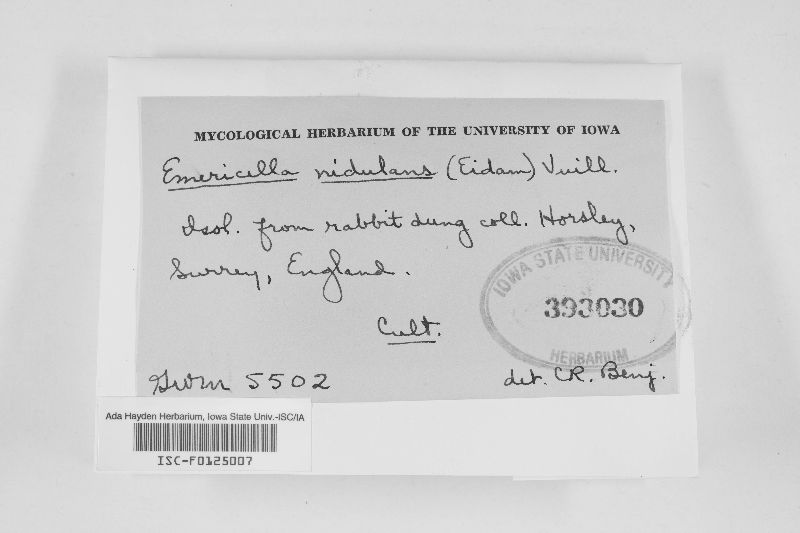 MYCOLOGICAL HERBARIUM OF THE UNIVERSITY OF IOWA
Emericella nidulans (Eidam) Vuill.
Isol. from rabbit dung coll. Horsley,
Surrey, England.
IOWA STATE UNIVERSITY
393030
HERBARIUM
Cult.
GWM 5502
det. CR. Benj.
Ada Hayden Herbarium, Iowa State Univ.-ISC/IA
ISC-F0125007